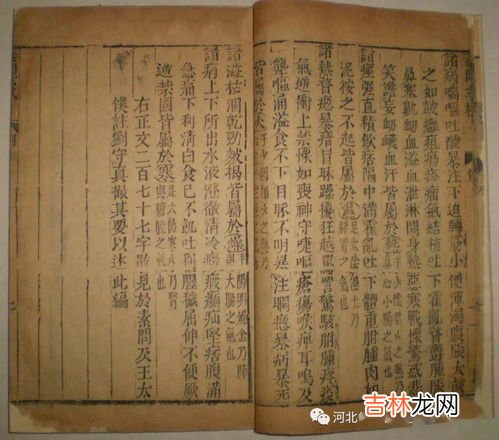 諸病喘嘔吐酸暴注下迫轉筋小便渾濁腹脹大鼓
之如鼓癰疽瘍疹瘤氣結核吐下霍亂瞀鬱腫脹
鼻窒鼽衄血溢血泄淋閟身熱惡寒戰慄驚惑悲
笑譫妄衄衊血汗皆屬於 手少陰君火之熱乃真心小腸之氣也
諸痙強直積飲痞隔中滿霍亂吐下體重胕腫肉如
泥按之不起皆屬於 足太陰濕土乃脾胃之氣也
諸熱瞀瘛暴瘖冒昧躁擾狂越罵詈驚駭胕腫疼酸
氣逆衝上禁慄如喪神守嚏嘔瘡瘍喉痺耳鳴及
聾嘔涌溢食不下目昧不明暴注瞤瘛暴病暴死
皆屬於火
諸澁枯涸乾勁皴揭皆屬於燥 陽明燥金乃肺與大腸之氣也
諸病上下所出水液澄徹清冷癥瘕㿗疝堅痞腹滿
急痛下利清白食已不飢吐利腥穢屈伸不便厥
逆禁固皆屬於寒 足太陽寒水乃腎與膀胱之氣也
右正文二百七十七字散見於素問及王太
僕註劉守真撮其要以述此編
河北
吉林龙网